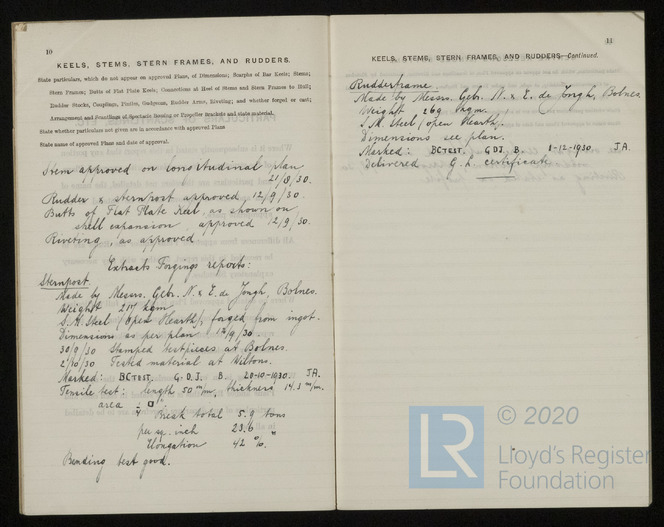 10
KEELS, STEMS, STERN FRAMES, AND RUDDERS.
State particulars, which do not appear on approved Plans, of Dimensions; Scarphs of Bar Keels; Stems;
Stern Frames; Butts of Flat Plate Keels, Connections at Heel of Stems and Stern Frames to Hull;
Rudder Stocks, Couplings, Pintles, Gudgeons, Rudder Arms, Riveting; and whether forged or cast;
Arrangement and Scantlings of Spectacle Bossing or Propeller Brackets and state material.
State whether particulars not given are in accordance with approved Plans
State name of approved Plans and date of approval.
Stem approved on longitudinal plan
21/8/30.
Rudder & sternpost approved 12/9/30.
Butts of Flat Plate Keel, as shown on
shell expansion approved 12/9/30.
Riveting, as approved
Extracts Forgings reports:
Sternpost.
Made by Messrs. Gebr. N. & E. de Jongh, Bolnes.
Weight 217 kgm
S.M. Steel (Open Hearth), forged from ingot.
Dimensions as per plan 12/9/30.
30/9/30 Stamped testpieces at Bolnes.
2/10/30 Tested material at Wiltons.
Marked: BC TEST. G.D.J. B. 20-10-1930. JA.
Tensile test: length 50 m/m, thickness 14.3 m/m.
area
Break total 5.9 tons
per sq. inch 23.6 "
Elongation 42 %.
Bending test good.
11
KEELS, STEMS, STERN FRAMES, AND RUDDERS—Continued.
Rudderframe
Made by Messrs. Gebr. N. & E. de Jongh, Bolnes
Weight 269 kgm.
S.M. Steel (open Hearth).
Dimensions see plan.
Marked: BC TEST. GDJ. B. 1-12-1930. JA.
Delivered G.L. certificate
© 2020
LR
Lloyd's Register
Foundation